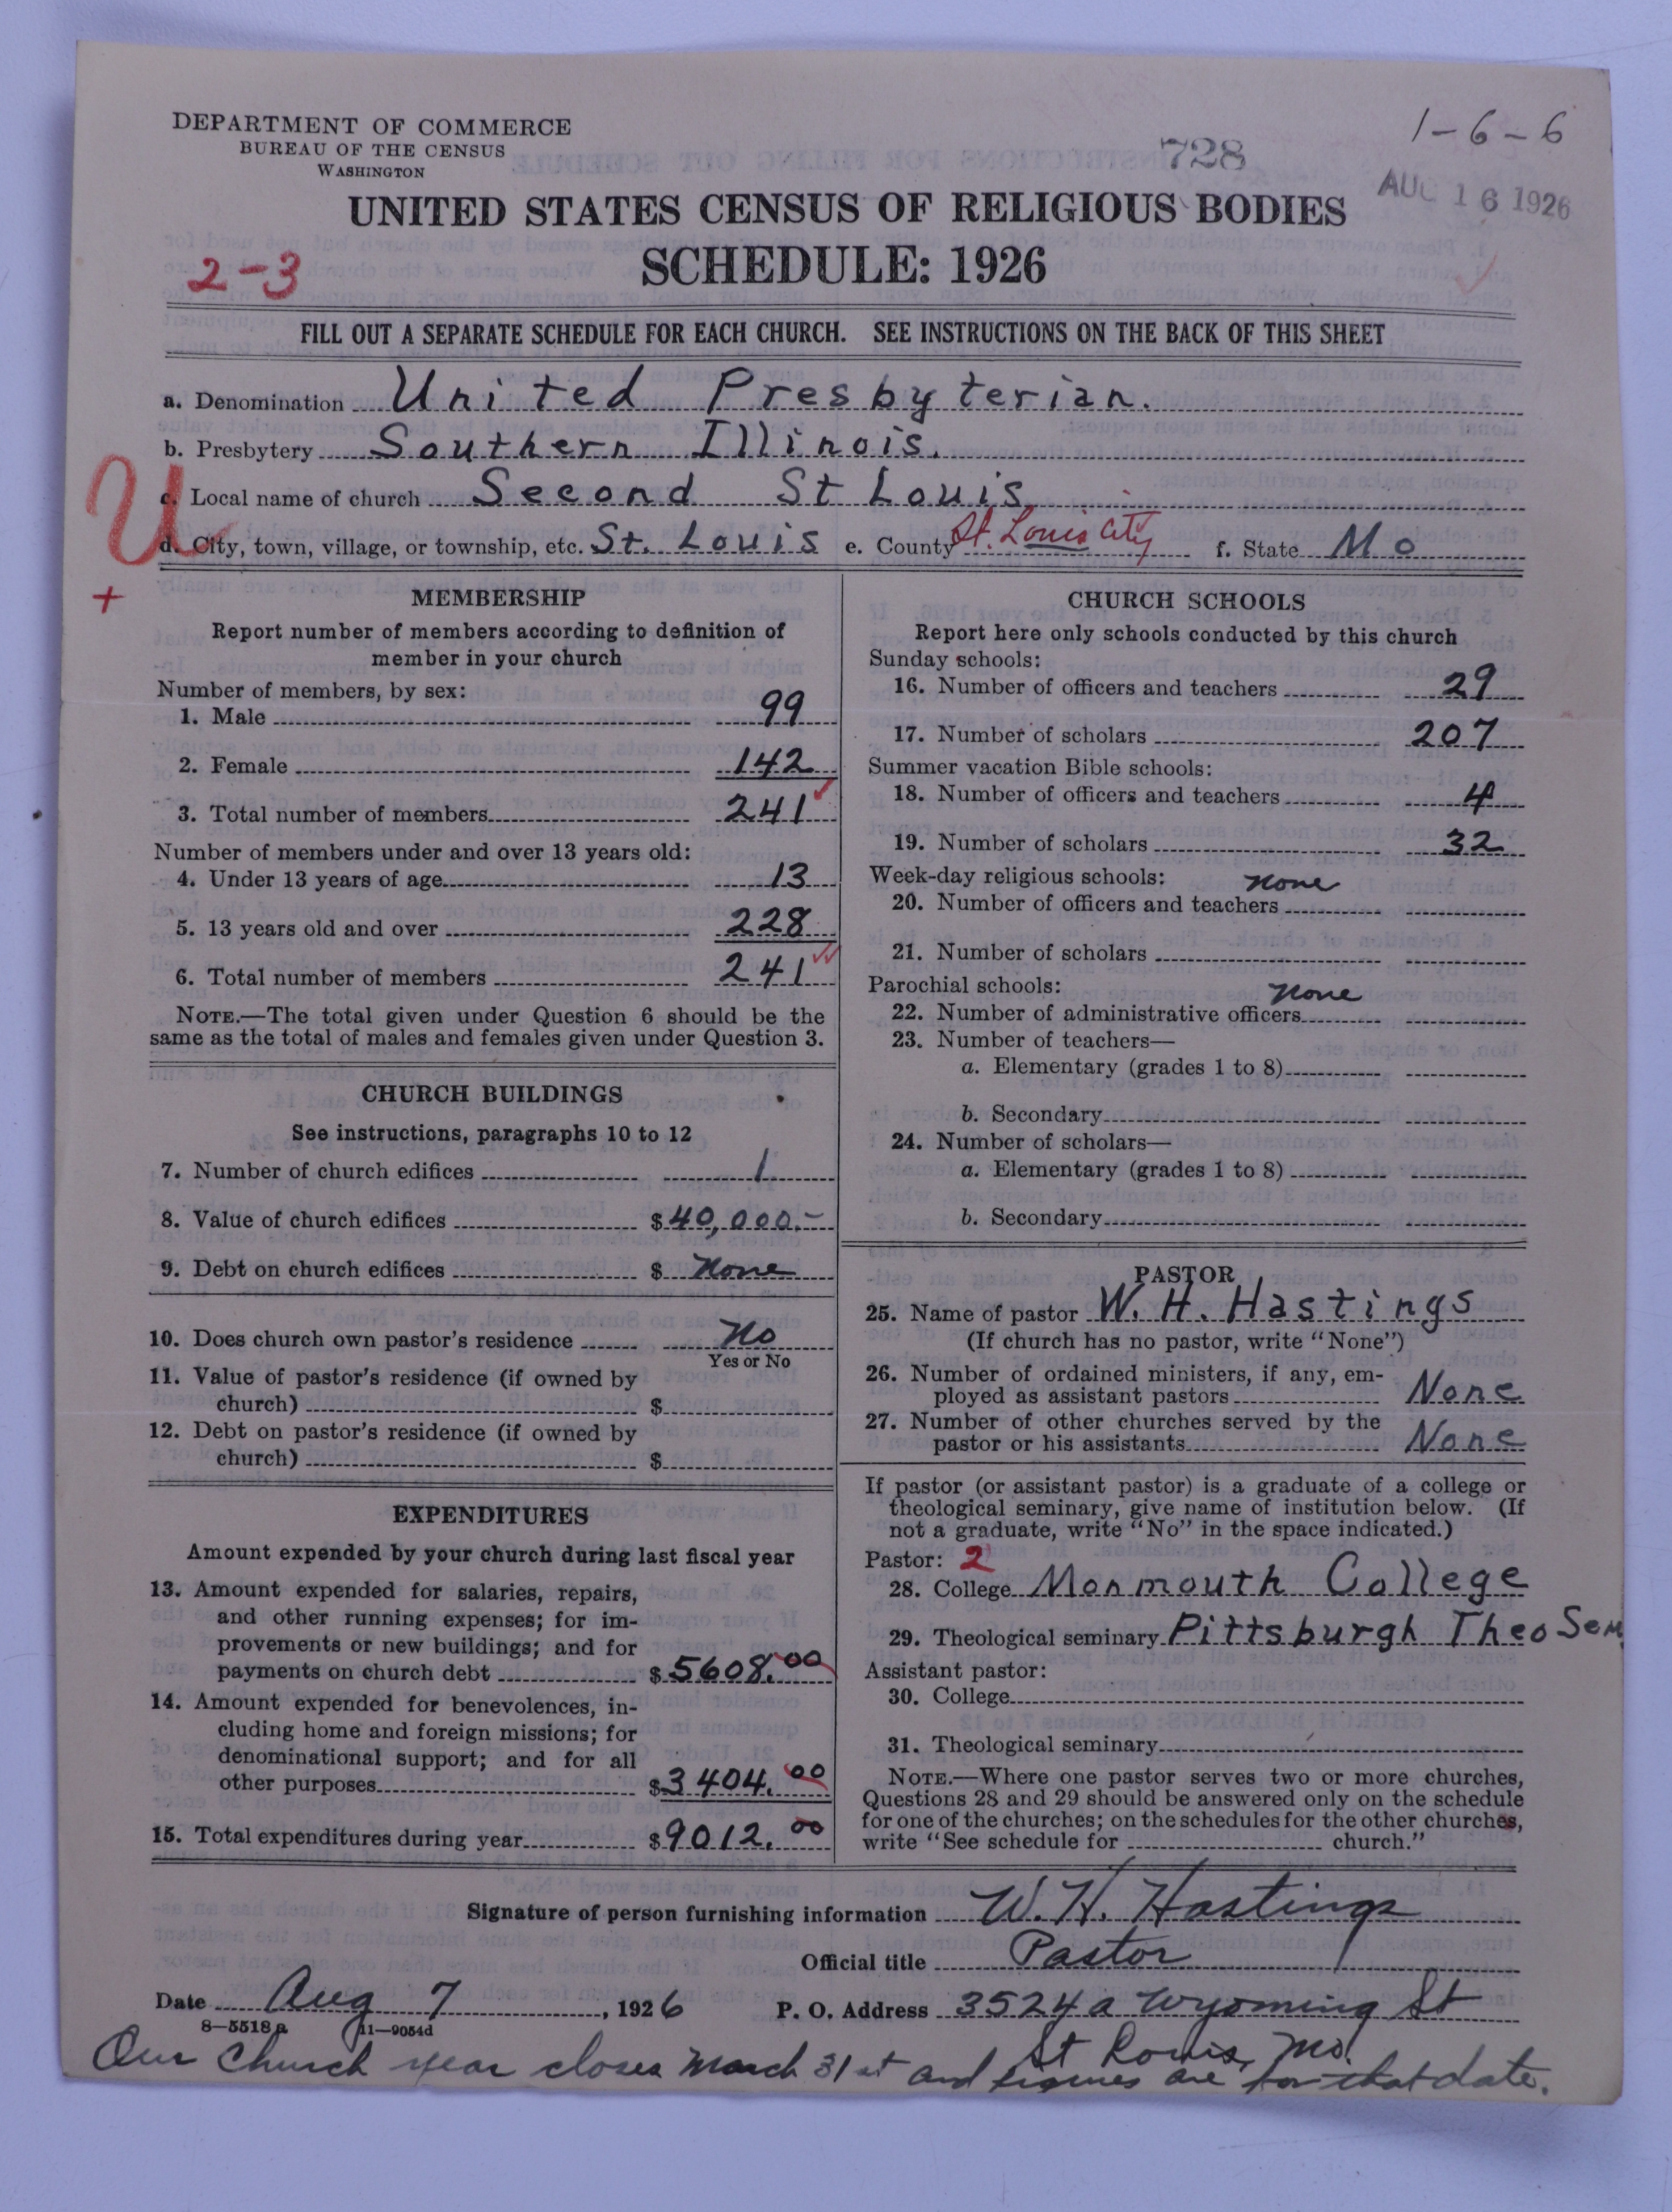 DEPARTMENT OF COMMERCE
BUREAU OF THE CENSUS
WASHINGTON
728
1-6-6
AUG 16 1926
UNITED STATES CENSUS OF RELIGIOUS BODIES
SCHEDULE: 1926
2-3
FILL OUT A SEPARATE SCHEDULE FOR EACH CHURCH. SEE INSTRUCTIONS ON THE BACK OF THIS SHEET
a. Denomination United Presbyterian.
b. Presbytery Southern Illinois.
c. Local name of church Second St Louis
d. City, town, village, or township, etc. St. Louis e. County St. Louis City f. State Mo
U
+
MEMBERSHIP
Report number of members according to definition of
member in your church
Number of members, by sex:
1. Male 99
2. Female 142
3. Total number of members 241
Number of members under and over 13 years old:
4. Under 13 years of age 13
5. 13 years old and over 228
6. Total number of members 241
NOTE.—The total given under Question 6 should be the
same as the total of males and females given under Question 3.
CHURCH BUILDINGS
See instructions, paragraphs 10 to 12
7. Number of church edifices 1
8. Value of church edifices $40,000.-
9. Debt on church edifices $ None
10. Does church own pastor's residence No
Yes or No
11. Value of pastor's residence (if owned by
church) $
12. Debt on pastor's residence (if owned by
church) $
EXPENDITURES
Amount expended by your church during last fiscal year
13. Amount expended for salaries, repairs,
and other running expenses; for im-
provements or new buildings; and for
payments on church debt $5608.00
14. Amount expended for benevolences, in-
cluding home and foreign missions; for
denominational support; and for all
other purposes $3404.00
15. Total expenditures during year $9012.00
CHURCH SCHOOLS
Report here only schools conducted by this church
Sunday schools:
16. Number of officers and teachers 29
17. Number of scholars 207
Summer vacation Bible schools:
18. Number of officers and teachers 4
19. Number of scholars 32
Week-day religious schools: None
20. Number of officers and teachers
21. Number of scholars
Parochial schools: None
22. Number of administrative officers
23. Number of teachers—
a. Elementary (grades 1 to 8)
b. Secondary
24. Number of scholars—
a. Elementary (grades 1 to 8)
b. Secondary
PASTOR
25. Name of pastor W. H. Hastings
(If church has no pastor, write "None")
26. Number of ordained ministers, if any, em-
ployed as assistant pastors None
27. Number of other churches served by the
pastor or his assistants None
If pastor (or assistant pastor) is a graduate of a college or
theological seminary, give name of institution below. (If
not a graduate, write "No" in the space indicated.)
Pastor: 2
28. College Monmouth College
29. Theological seminary Pittsburgh Theo Sem
Assistant pastor:
30. College
31. Theological seminary
NOTE.—Where one pastor serves two or more churches,
Questions 28 and 29 should be answered only on the schedule
for one of the churches; on the schedules for the other churches,
write "See schedule for church."
Signature of person furnishing information W. H. Hastings
Official title Pastor
Date Aug 7, 1926 P. O. Address 3524a Wyoming St
8-5518a 11-9054d
St Louis, Mo.
Our Church year closes March 31st and figures are for that date.